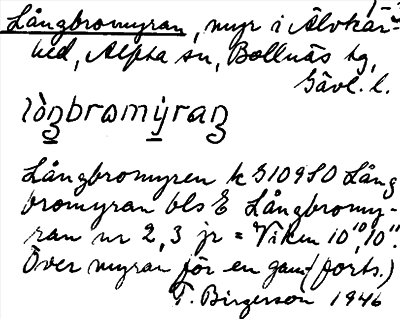 Långbromyran, myr i Älvkar-
hed, Alfta sn, Bollnäs tg,
Gävl. l.
lò̀ŋbromẏraŋ
Långbromyren k G109SO Lång
bromyran bls E Långbromy-
ran nr 2, 3 jr = Viken 10¹⁰, 10¹¹.
Över myran för en gam- (forts.)
T. Birgerson 1946